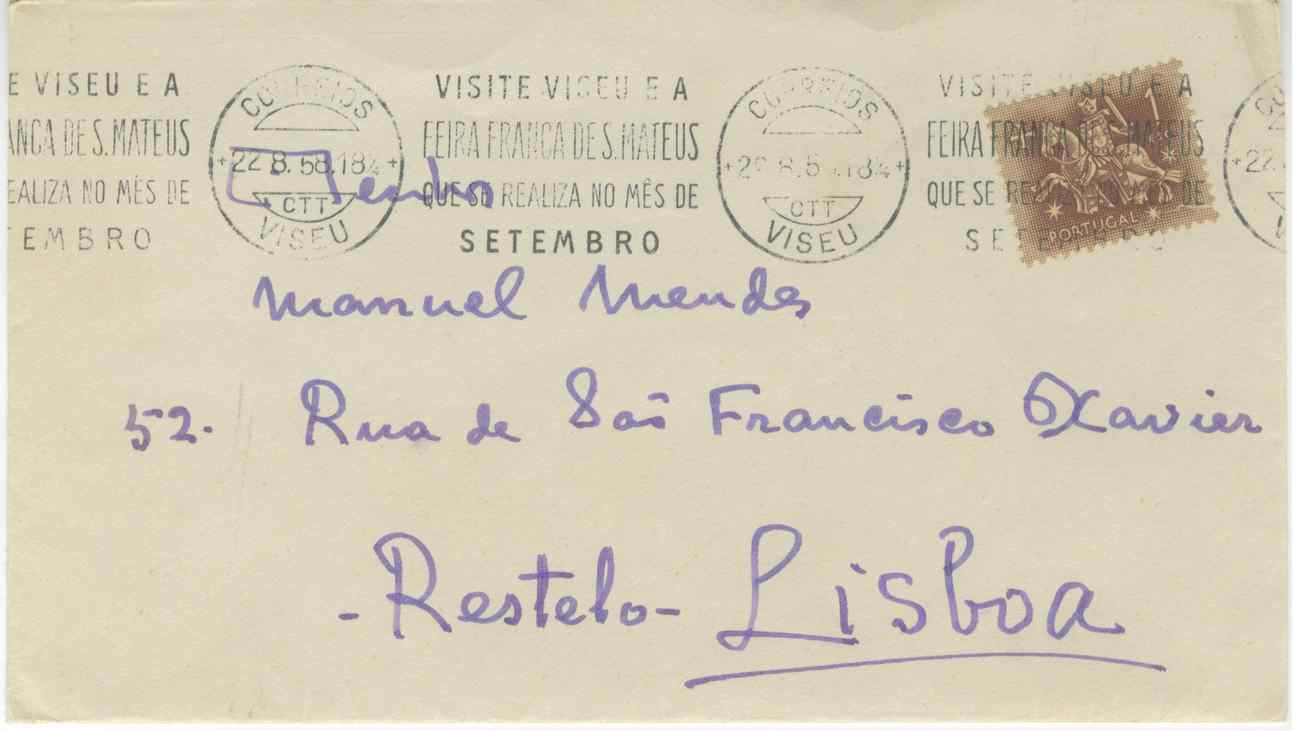 E VISEU E A
ANCA DE S. MATEUS
EALIZA NO MÊS DE
TEMBRO
CORREIOS
22.8.58.18¼
CTT
VISEU
VISITE VISEU E A
FEIRA FRANCA DE S. MATEUS
QUE SE REALIZA NO MÊS DE
SETEMBRO
CORREIOS
22.8.5 .18¼
CTT
VISEU
VISITE VISEU E A
FEIRA FRANCA DE S. MATEUS
QUE SE REALIZA NO MÊS DE
SETEMBRO
1
PORTUGAL
22.
Manuel Mendes
52. Rua de São Francisco Xavier
- Restelo - Lisboa